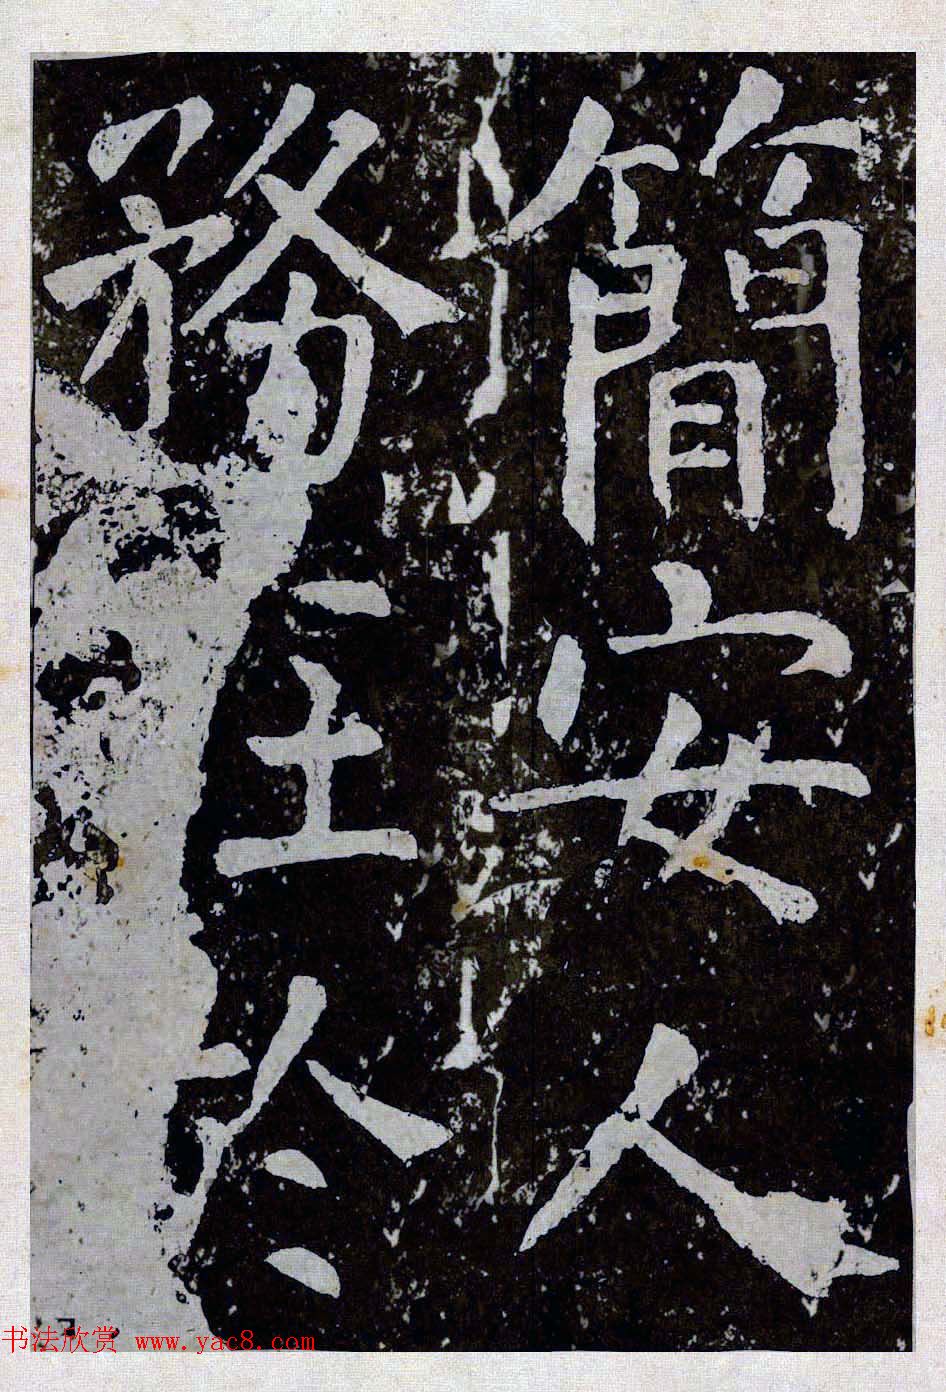 簡安人
務於
书法欣赏 www.yac8.com